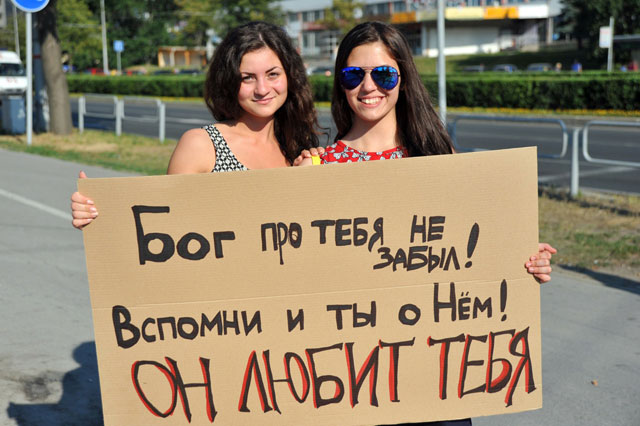 Бог про тебя не забыл!
Вспомни и ты о Нём!
ОН ЛЮБИТ ТЕБЯ